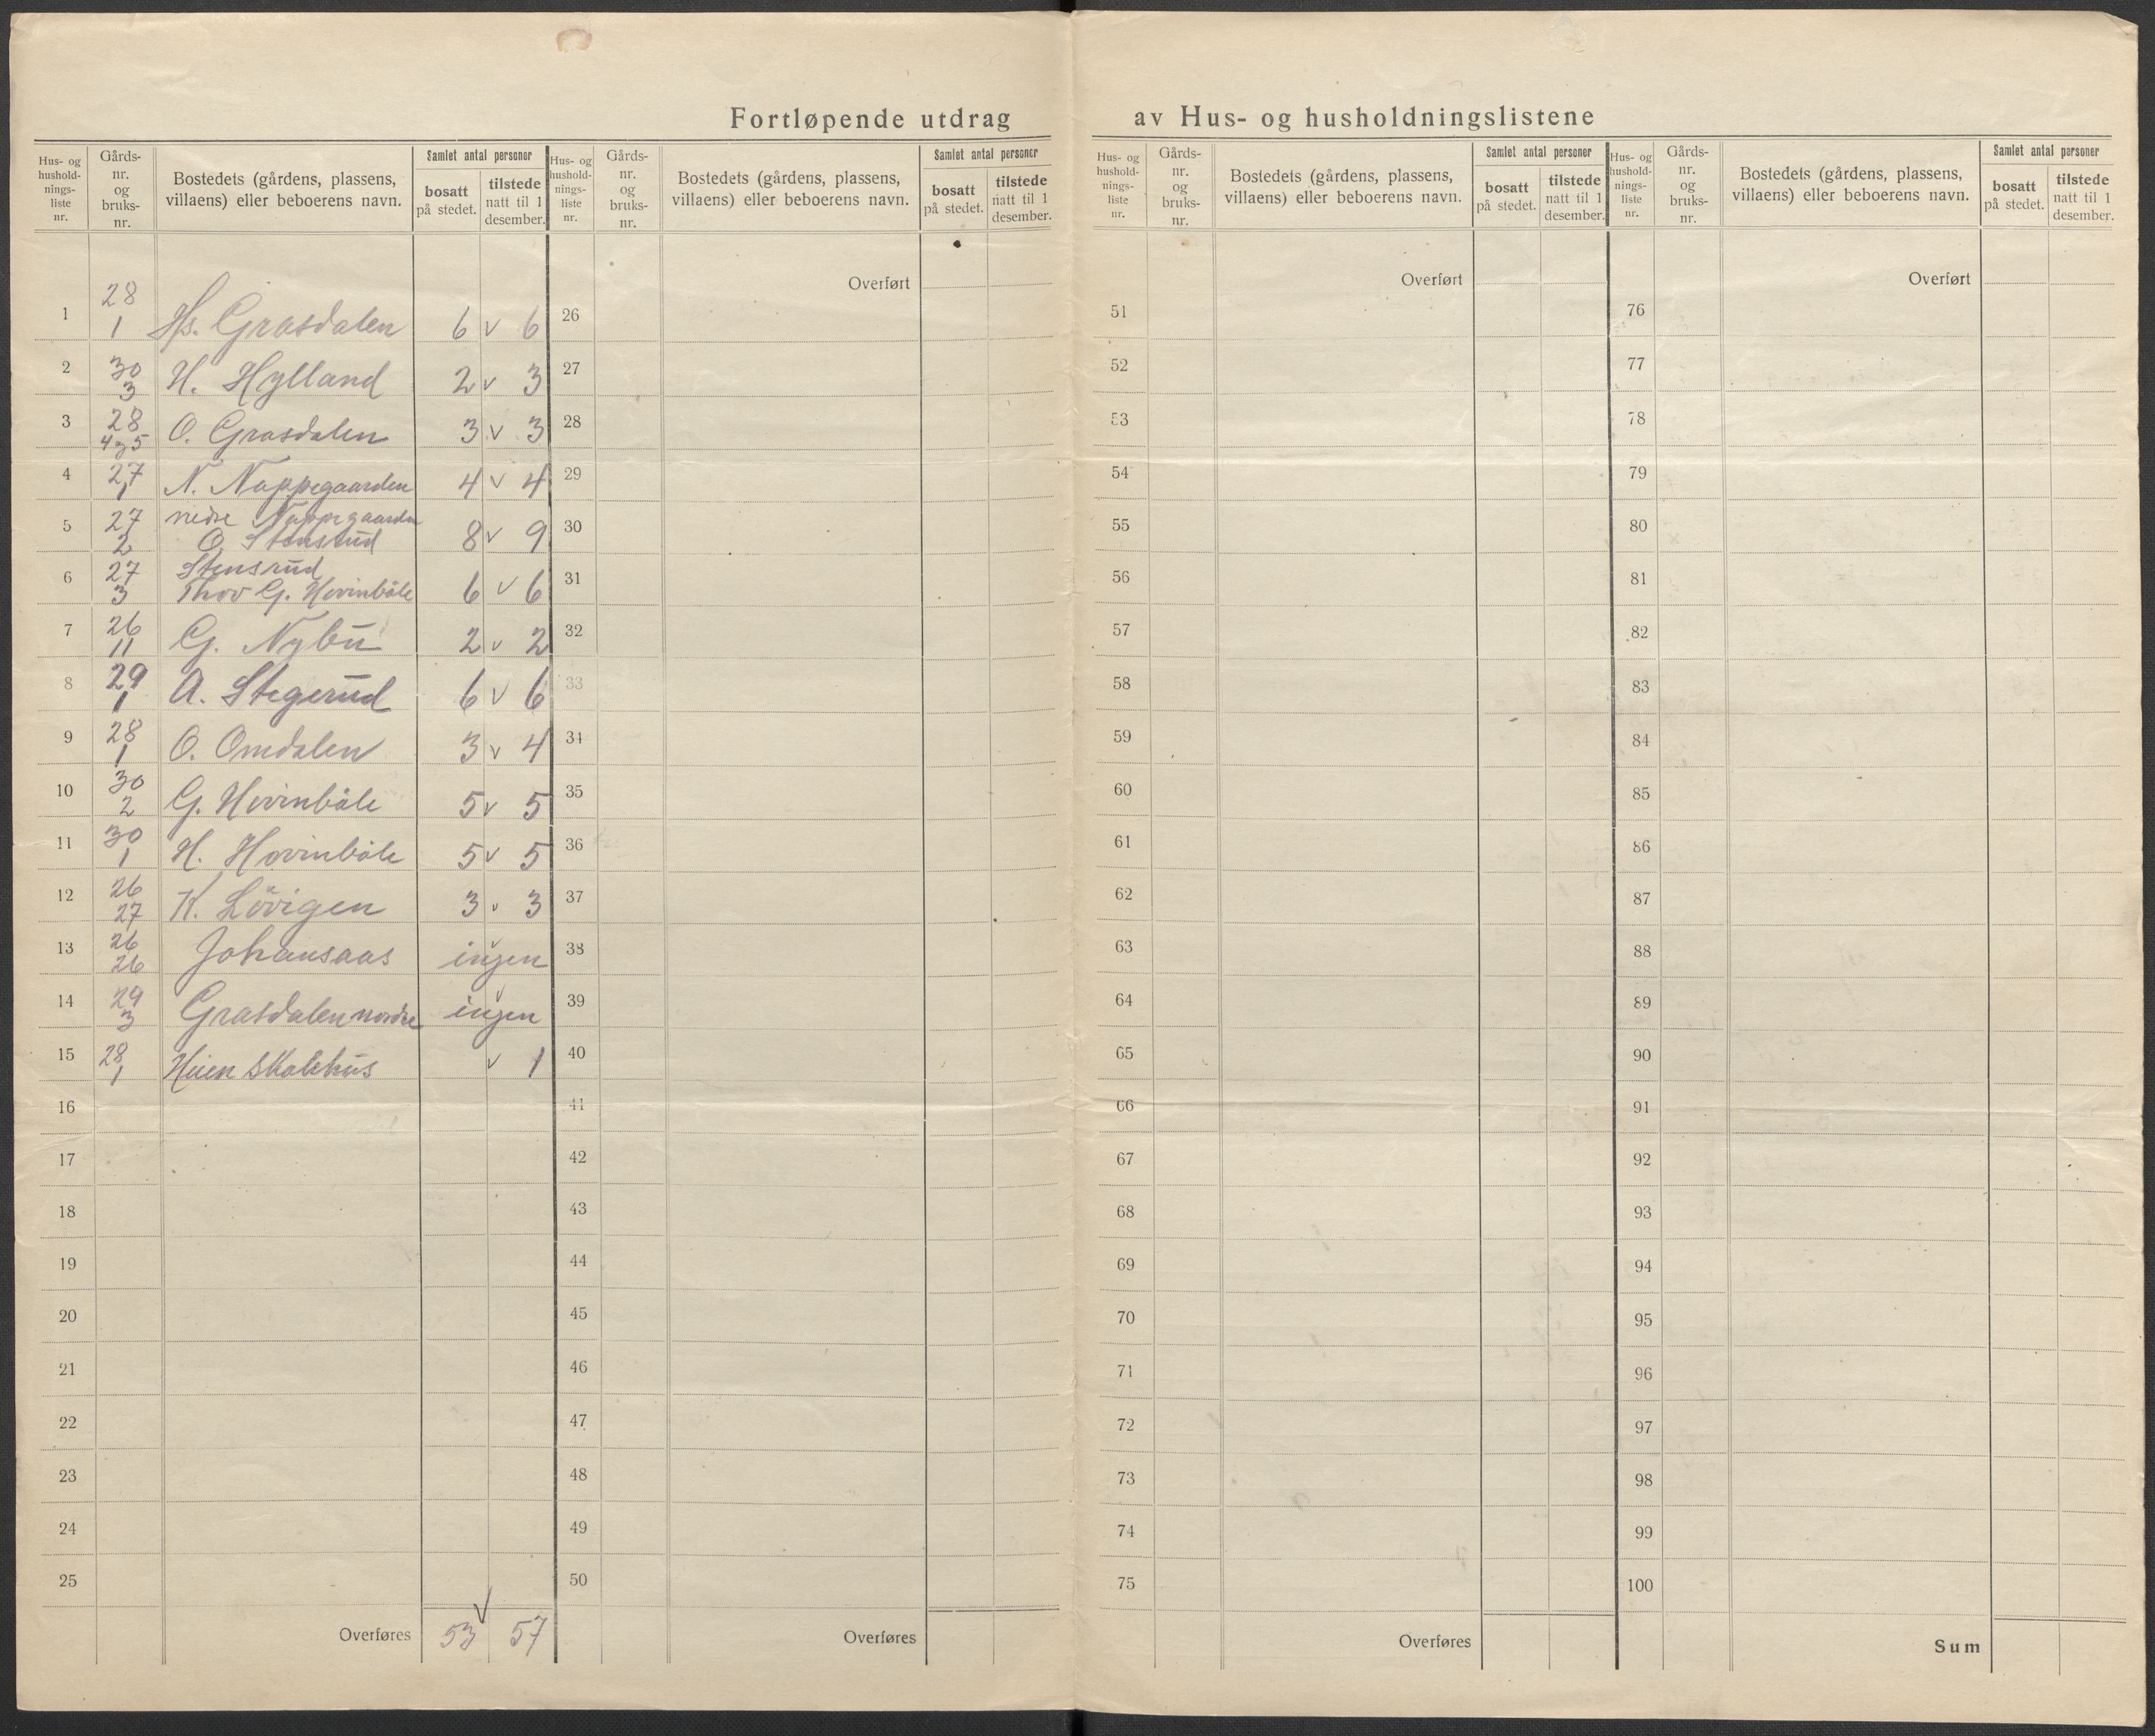 Fortløpende utdrag av Hus- og husholdningslistene
Hus- og hushold-nings-liste nr. | Gårds-nr. og bruks-nr. | Bostedets (gårdens, plassens, villaens) eller beboerens navn. | Samlet antal personer | bosatt på stedet. | tilstede natt til 1 desember.
Hus- og hushold-nings-liste nr. | Gårds-nr. og bruks-nr. | Bostedets (gårdens, plassens, villaens) eller beboerens navn. | Samlet antal personer | bosatt på stedet. | tilstede natt til 1 desember.
Hus- og hushold-nings-liste nr. | Gårds-nr. og bruks-nr. | Bostedets (gårdens, plassens, villaens) eller beboerens navn. | Samlet antal personer | bosatt på stedet. | tilstede natt til 1 desember.
Hus- og hushold-nings-liste nr. | Gårds-nr. og bruks-nr. | Bostedets (gårdens, plassens, villaens) eller beboerens navn. | Samlet antal personer | bosatt på stedet. | tilstede natt til 1 desember.
1 28 1 Grasdalen 6 v 6
2 30 3 H. Hylland 2 v 3
3 28 4 og 5 O. Grasdalen 3 v 3
4 27 1 N. Nappegaarden 4 v 4
5 27 2 nedre Nappegaarden
O. Stensrud 8 v 9
6 27 3 Stensrud
Thov G. Hovinbøle 6 v 6
7 26 11 G. Nybu 2 v 2
8 29 1 A. Stegerud 6 v 6
9 28 1 O. Omdalen 3 v 4
10 30 2 G. Hovinbøle 5 v 5
11 30 1 H. Hovinbøle 5 v 5
12 26 27 K. Lövigen 3 v 3
13 26 26 Johansaas ingen
14 29 3 Grasdalen nordre ingen
15 28 1 skolehus v 1
16
17
18
19
20
21
22
23
24
25
Overføres 53 57
Overført
26
27
28
29
30
31
32
33
34
35
36
37
38
39
40
41
42
43
44
45
46
47
48
49
50
Overføres
Overført
51
52
53
54
55
56
57
58
59
60
61
62
63
64
65
66
67
68
69
70
71
72
73
74
75
Overføres
Overført
76
77
78
79
80
81
82
83
84
85
86
87
88
89
90
91
92
93
94
95
96
97
98
99
100
Sum